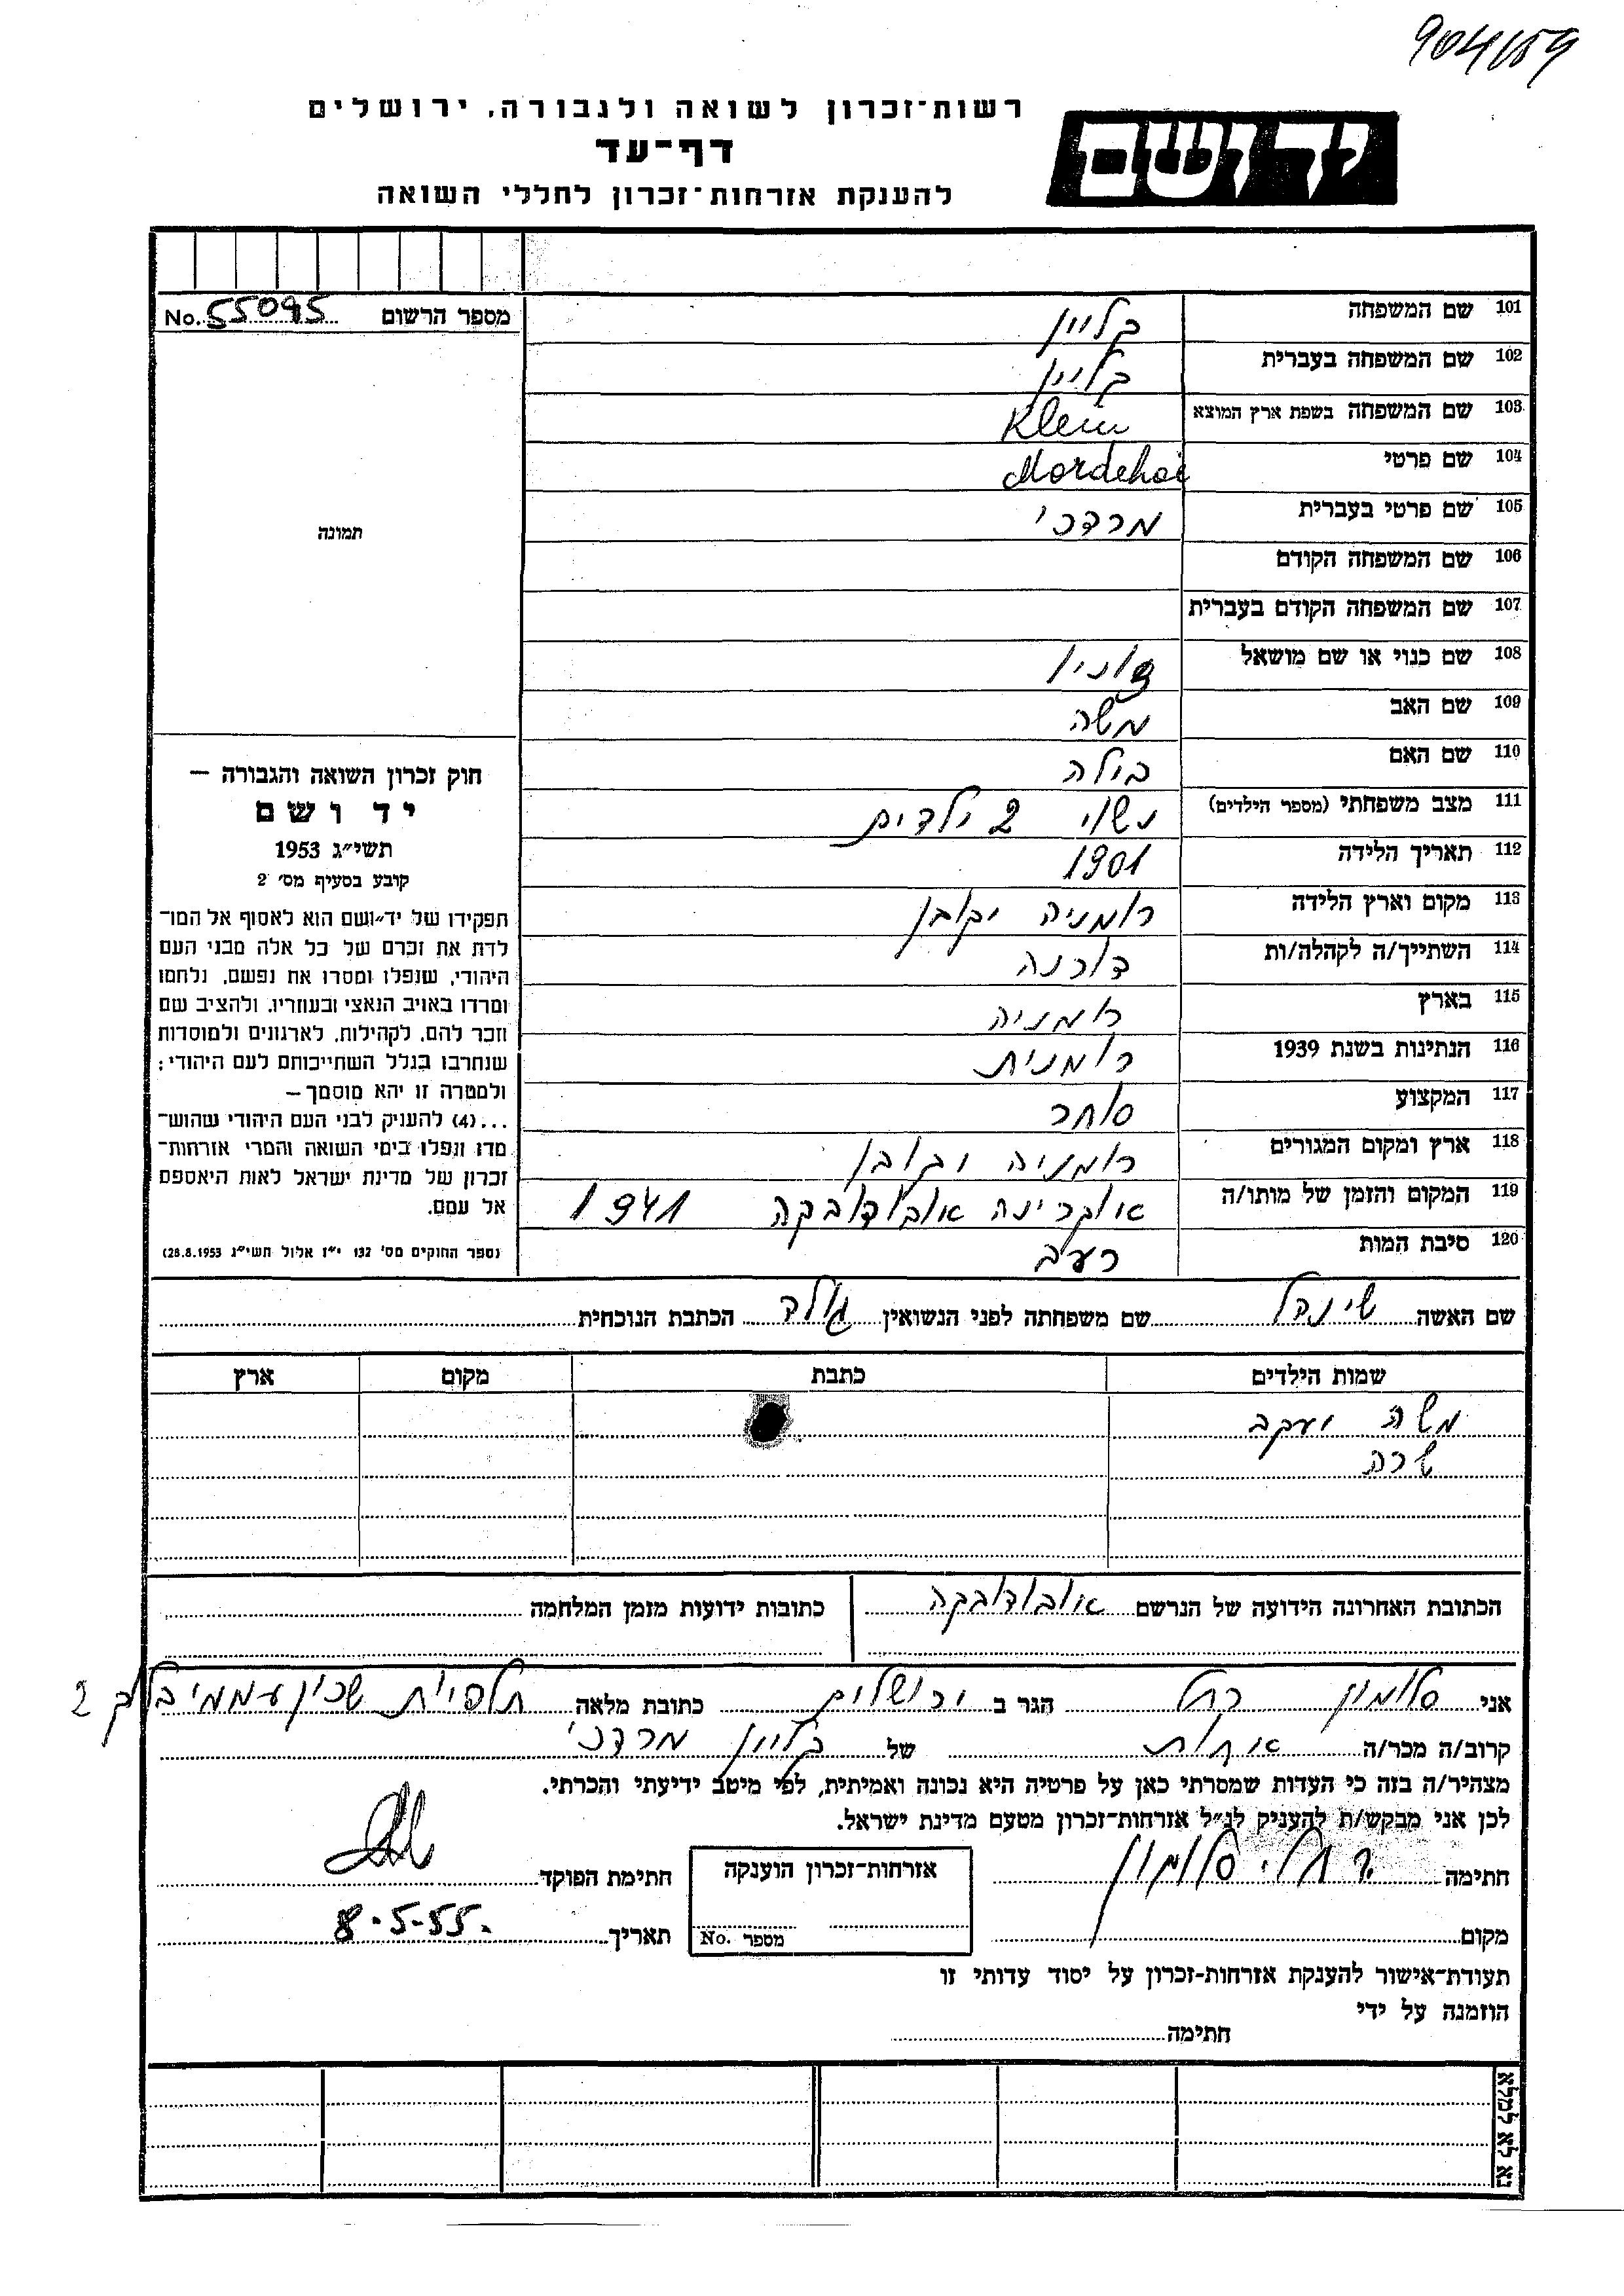 904/159
רשות־זכרון לשואה ולגבורה, ירושלים
יד ושם
דף־עד
להענקת אזרחות־זכרון לחללי השואה
מספר הרשום No. 55095
תמונה
101 שם המשפחה קליין
102 שם המשפחה בעברית קליין
103 שם המשפחה בשפת ארץ המוצא Klein
104 שם פרטי Mordehai
105 שם פרטי בעברית מרדכי
106 שם המשפחה הקודם
107 שם המשפחה הקודם בעברית
108 שם כנוי או שם מושאל
109 שם האב משה
110 שם האם בילה
111 מצב משפחתי (מספר הילדים) נשוי 2 ילדים
112 תאריך הלידה 1901
113 מקום וארץ הלידה רומניה
114 השתייך/ה לקהלה/ות דורנה
115 בארץ רומניה
116 הנתינות בשנת 1939 רומנית
117 המקצוע סוחר
118 ארץ ומקום המגורים רומניה
119 המקום והזמן של מותו/ה אוקרינה אובודובקה 1941
120 סיבת המות רעב
חוק זכרון השואה והגבורה –
יד ושם
תשי״ג 1953
קובע בסעיף מס׳ 2
תפקידו של יד־ושם הוא לאסוף אל המו־
לדת את זכרם של כל אלה מבני העם
היהודי, שנפלו ומסרו את נפשם, נלחמו
ומרדו באויב הנאצי ובעוזריו, ולהציב שם
וזכר להם, לקהילות, לארגונים ולמוסדות
שנחרבו בגלל השתייכותם לעם היהודי;
ולמטרה זו יהא מוסמך –
...(4) להעניק לבני העם היהודי שהוש־
מדו ונפלו בימי השואה והמרי אזרחות־
זכרון של מדינת ישראל לאות היאספם
אל עמם.
(ספר החוקים מס׳ 132 י״ז אלול תשי״ג 28.8.1953)
שם האשה שינדל שם משפחתה לפני הנשואין גולד הכתבת הנוכחית
שמות הילדים כתבת מקום ארץ
משה יעקב
שרה
הכתובת האחרונה הידועה של הנרשם אובודובקה כתובות ידועות מזמן המלחמה
אני סלומון רחל הגר ב ירושלים כתובת מלאה תלפיות שכון עממי בלוק 2
קרוב/ה מכר/ה אחות של קליין מרדכי
מצהיר/ה בזה כי העדות שמסרתי כאן על פרטיה היא נכונה ואמיתית, לפי מיטב ידיעתי והכרתי.
לכן אני מבקש/ת להעניק לנ״ל אזרחות־זכרון מטעם מדינת ישראל.
חתימה סלומון אזרחות־זכרון הוענקה חתימת הפוקד
מקום מספר No. תאריך 8.5.55
תעודת־אישור להענקת אזרחות־זכרון על יסוד עדותי זו
הוזמנה על ידי
חתימה
נא לא למלא